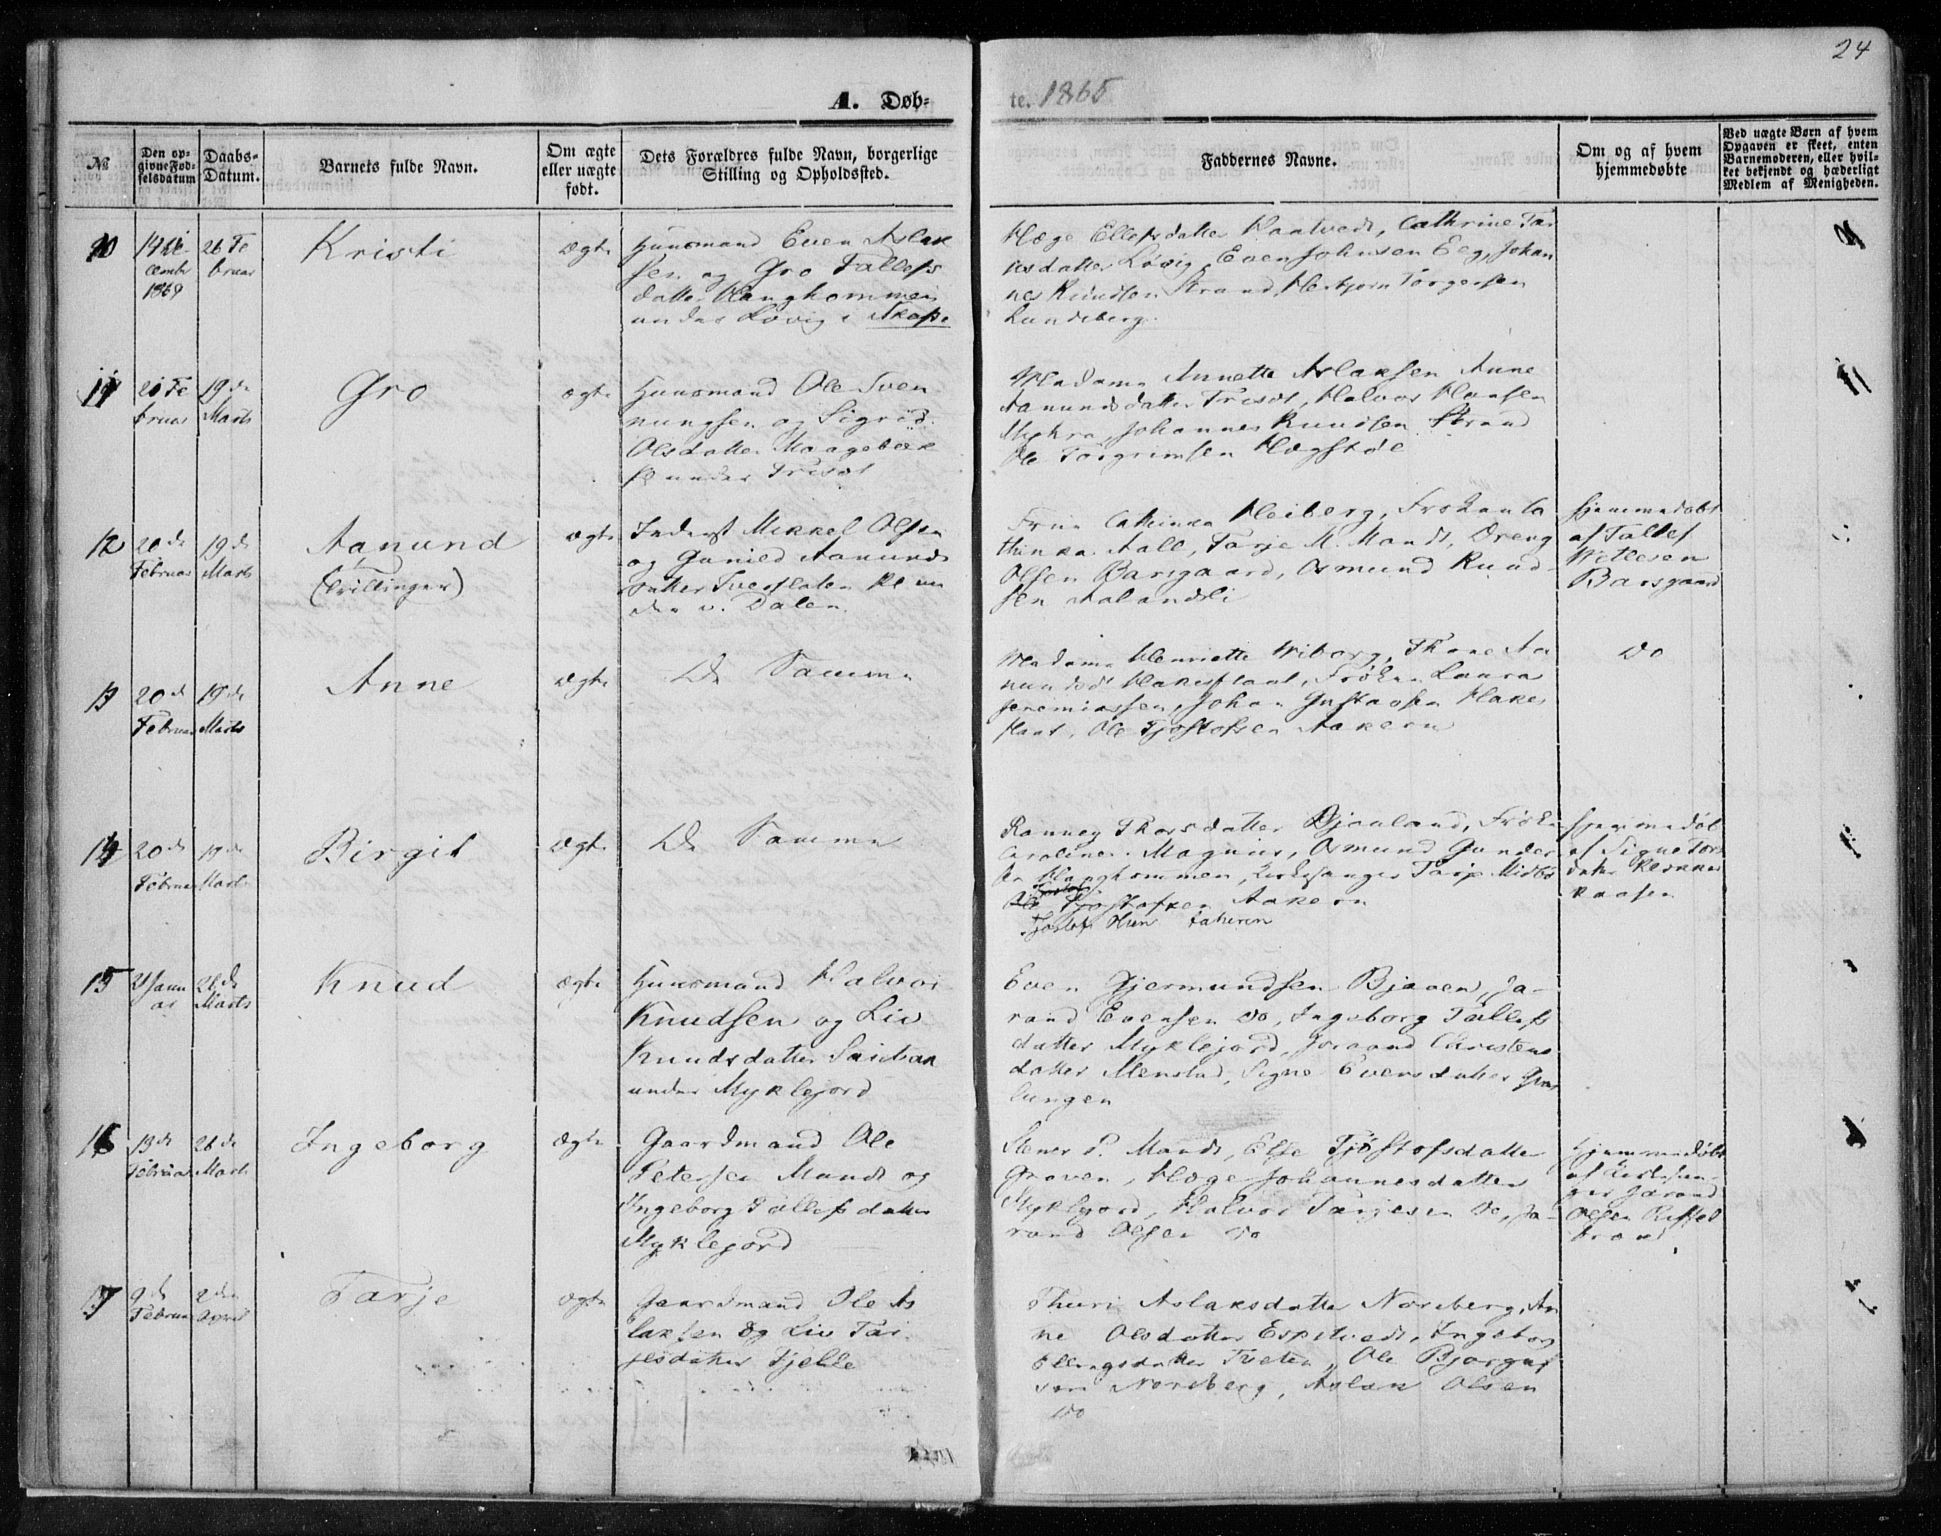 24
A. Døb-
te. 1865
№
Den op-
givne Fød-
selsdatum
Daabs-
Datum.
Barnets fulde Navn.
Om ægte
eller uægte
født.
Dets Forældres fulde Navn, borgerlige
Stilling og Opholdssted.
Faddernes Navne.
Om og af hvem
hjemmedøbte
Ved uægte Børn af hvem
Opgaven er skeet, enten
Barnemoderen, eller hvil-
ket bekjendt og hæderligt
Medlem af Menigheden.
10
cember
26 Fe
bruar
Kristi
ægte
Huusmand Even Aslak
sen og Gro Tallefs
datter Haughommen
under Løvig i
Hæge Ellefsdatter Kaatvedt, Cathrine Tar
jesdatter Løvig, Even Johnsen Eeg, Johan
nes Knudsen Strand, Herbjørn Torgersen
Lundeberg.
11
20 Fe
bruar
19de
Marts
Gro
ægte
Huusmand Ole Sven
nungsen og Sigrid
Olsdatter Maagebæk
under Trisæt
11
Madame Annette Aslaksen Anne
Aanundsdatter Trisæt, Halvor Hansen
Johannes Knudsen Strand
Ole Torgrimsen Hægstøl
12
20de
Februar
19de
Marts
Aanund
(trillinger)
ægte
Inderst Mikkel Olsen
og Gunild Aanunds
datter Tveitlaten Pl un
der v. Dalen.
Fru Cathinka Heiberg, Frøken Ca
thinka Aall, Tarje M. Mandt, Dreng
Olsen Barsgaard, Osmund Knud
sen Aalandsli
hjemmedøbt
af Tallef
Barsgaard
13
20de
Februar
19de
Marts
Anne
ægte
De Samme
Madame Henriette Wiborg, Thone Aa
nundsdt Hakestaat, Frøken Laura
Jeremiassen, Johan Gustavsen Hake
staat, Ole Tjostofsen Aakern
do
14
20de
Februar
19de
Marts
Birgit
ægte
De Samme
Ranney Thorsdatter Bjaaland, Frøken
Caroline Magnus, Osmund Gunder
sen Haughommen, Kirkesanger Tarje Midtbø
Tjostofsen Aakern
Tjostof Aakeren
hjemmedøbt
af Signe Tors
datter
kaasen
15
2 Janu
ar
26de
Marts
Knud
ægte
Huusmand Halvor
Knudsen og Liv
Knudsdatter
under Myklejord
Even Gjermundsen Bjaaen, Ja-
rand Evensen do, Ingeborg Tallefs
datter Myklejord, Joraand Christens
datter Menstad, Signe Evensdatter Graa
lungen
16
13de
Februar
26de
Marts
Ingeborg
ægte
Gaardmand Ole
Petersen Mandt og
Ingeborg Tallefsdatter
Myklejord
Stener P. Mandt, Else Tjøstofsdatter
Groven, Hæge Johannesdatter
Myklejord, Halvor Tarjesen do, Ja-
rand Olsen do
hjemmedøbt
af Kirkesan-
ger Jarand
Olsen
17
9de
Februar
2den
April
Tarje
ægte
Gaardmand Ole As
laksen og Liv Tar
jesdatter Fjelle
Thuri Aslaksdatter Norsberg, An
ne Olsdatter Espetvedt, Ingeborg
Ellingsdatter Tveten, Ole Bjørguf
sen Norsberg, Aslak Olsen
do